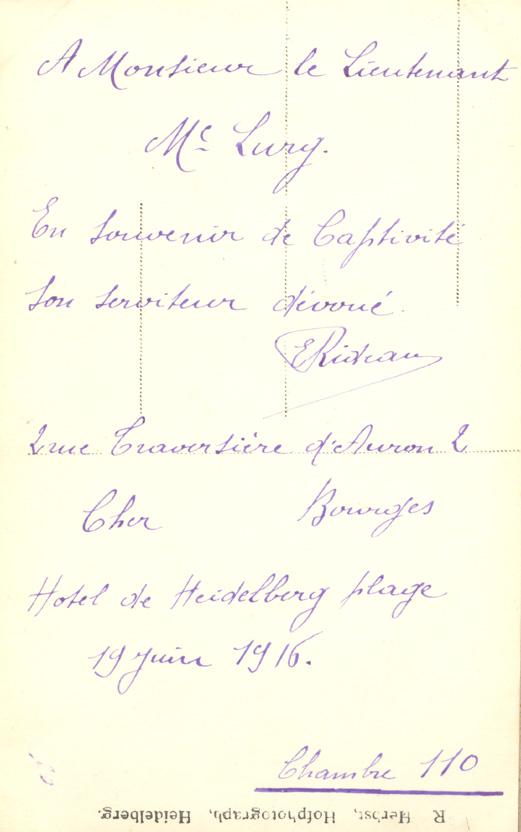 A Monsieur le Lieutenant
Mc Lurg.
En souvenir de Captivité
Son serviteur dévoué.
E Rideau
2 rue Traversière d'Auron 2
Cher Bourges
Hotel de Heidelberg plage
19 juin 1916.
Chambre 110
R. Herbst, Hofphotograph, Heidelberg.